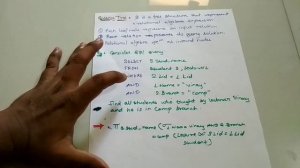 Relation Tree = It is a tree structure that represent
relational algebra expression
① Each leaf node represents an input relation
② Root relation represents to query solution
Relational algebra opⁿ at internal nodes
Consider SQL query
SELECT S.Stud.name
FROM Student S,
WHERE S.Lid = L.Lid
AND L.Name = "Vinay"
AND S.Branch = "Comp"
Find all students who taught by lecturer Vinay
and he is in Comp Branch
π S.Stud_name (σ L.Name = Vinay AND S.Branch
= Comp (Lecture ⋈ S.Lid = L.Lid
Student)